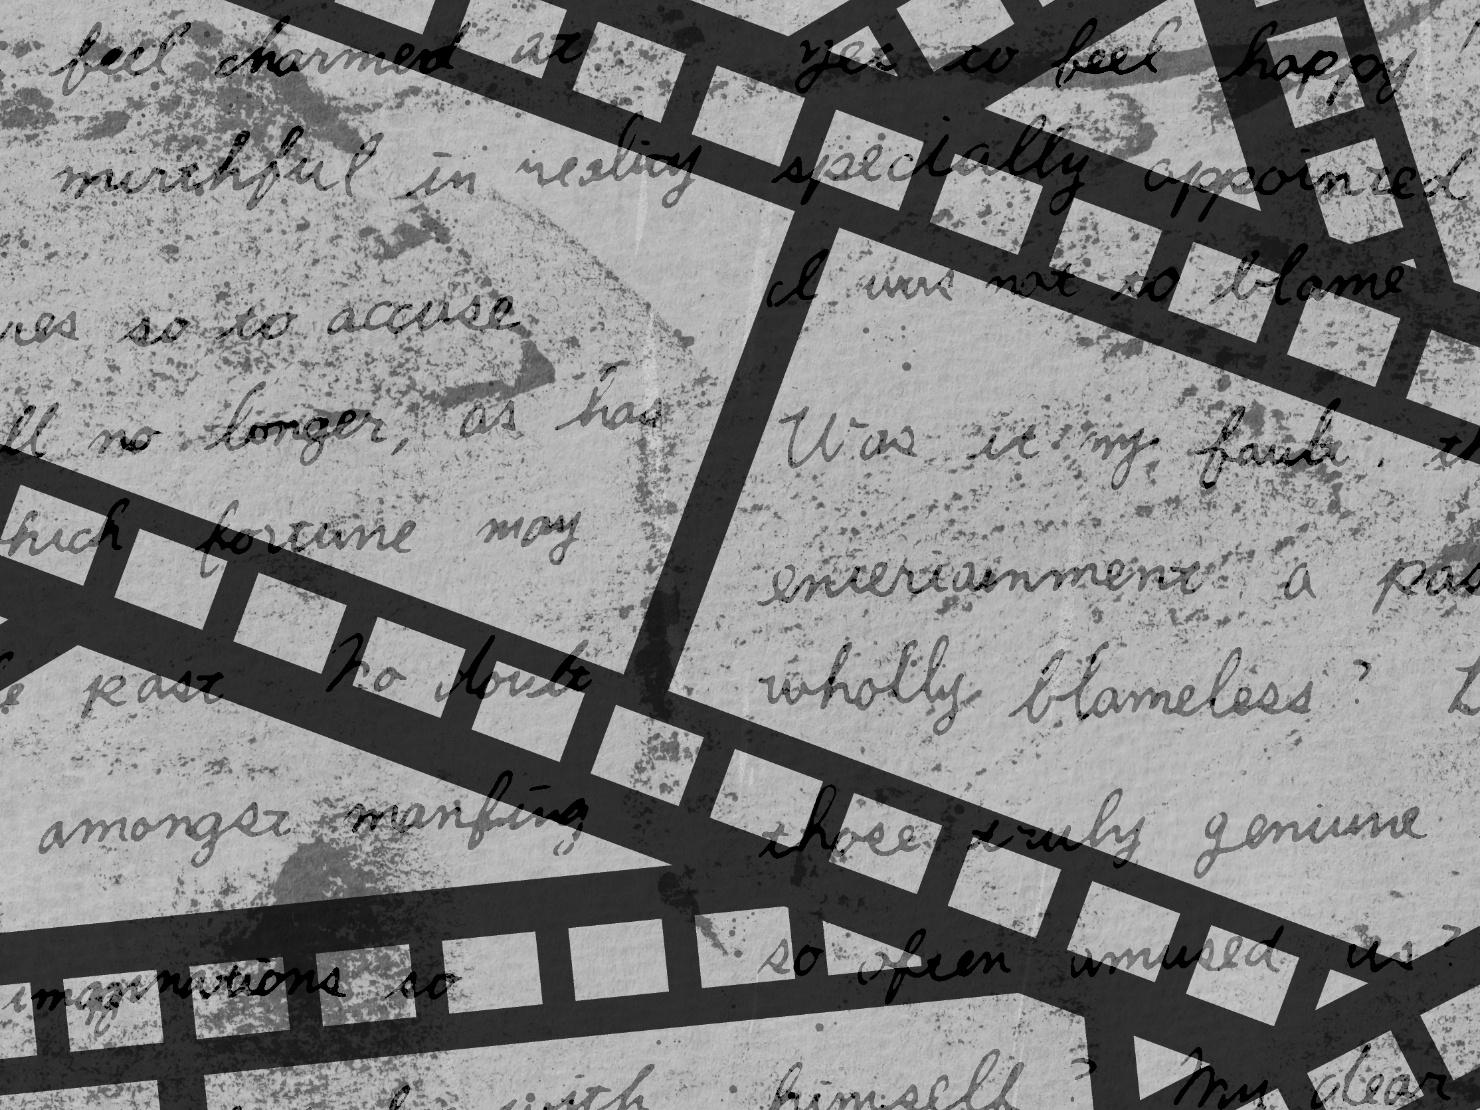 feel charmed at yes to feel happy
mirthful in reality specially appointed
res so to accuse I was not to blame
ll no longer, as has Was it my fault,
hich fortune may entertainment a pas
e past No doubt wholly blameless?
amongst mankind those truly genuine
imaginations so so often amused us?
with himself? My dear